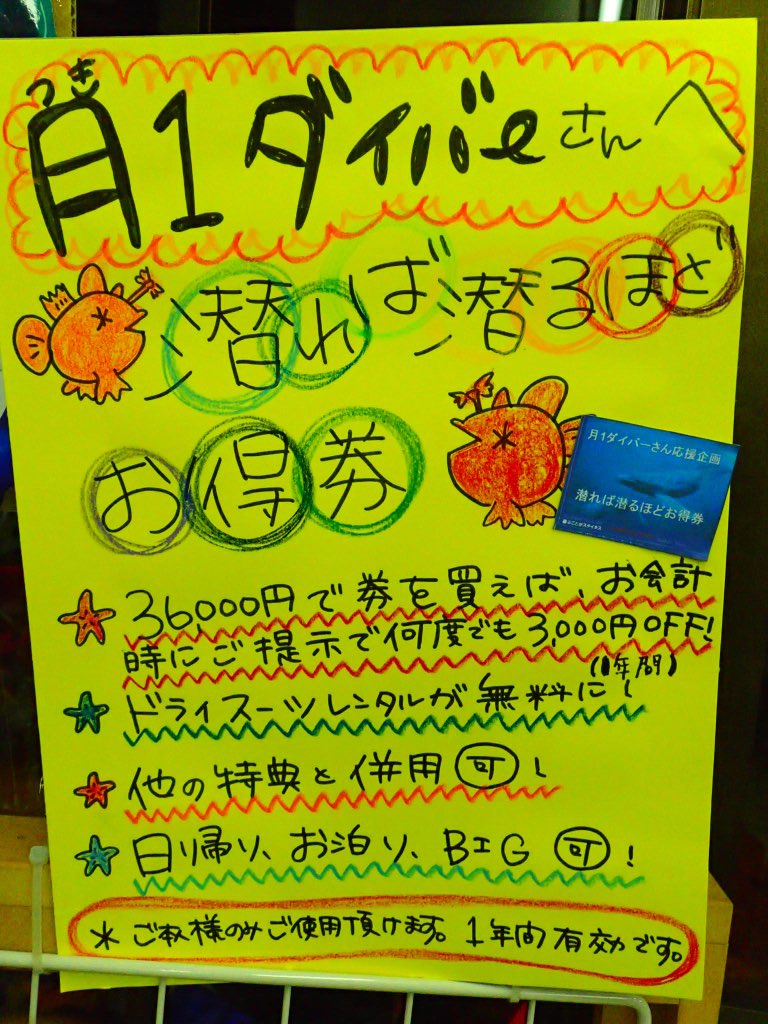 つき
月1ダイバーさんへ
潜れば潜るほど
お得券
月1ダイバーさん応援企画
潜れば潜るほどお得券
36000円で券を買えば、お会計
時にご提示で何度でも3,000円OFF!
(1年間)
ドライスーツレンタルが無料に!
他の特典と併用可!
日帰り、お泊り、BIG可!
*ご本人様のみご使用頂けます。1年間有効です。